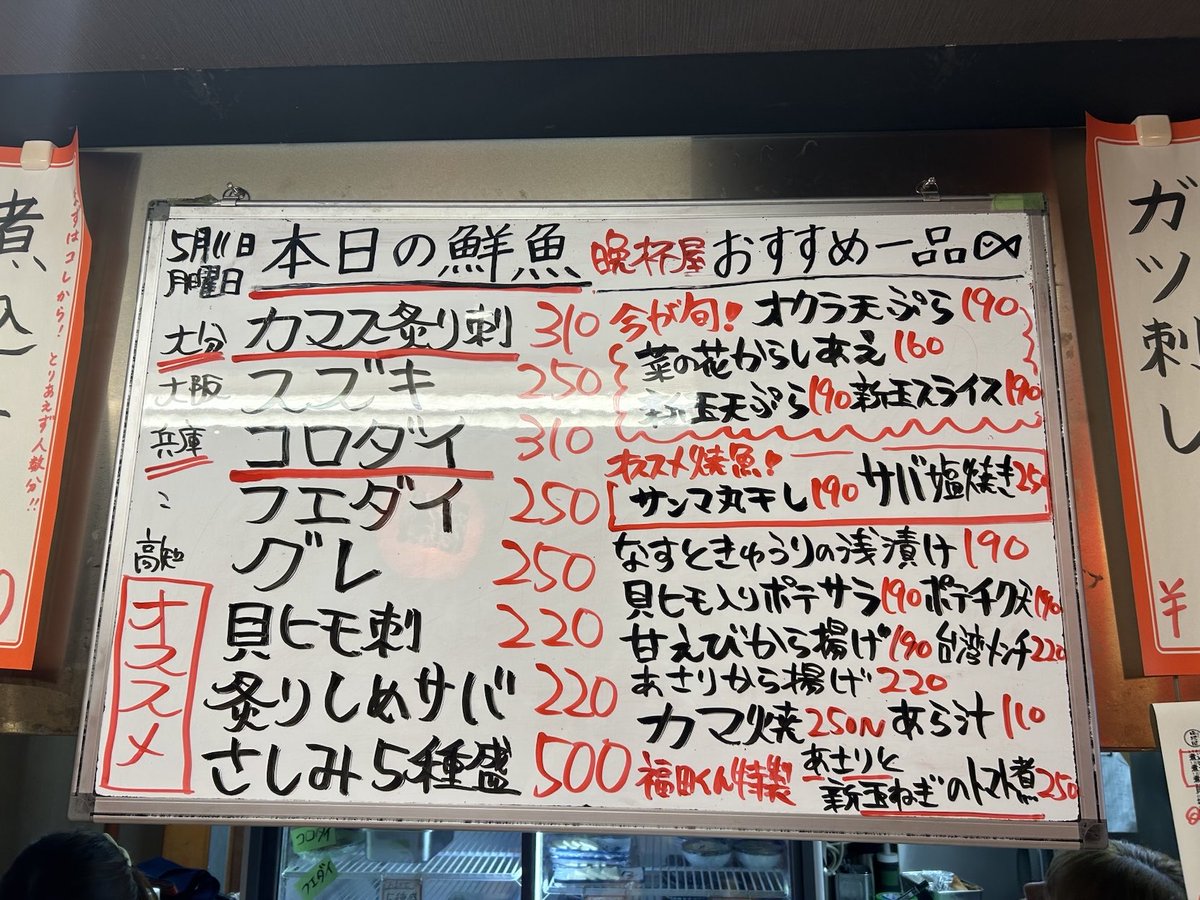 5月11日
月曜日
本日の鮮魚
大分 カマス炙り刺 310
大阪 スズキ 250
兵庫 コロダイ 310
〃 フエダイ 250
高知 グレ 250
オススメ
貝ヒモ刺 220
炙りしめサバ 220
さしみ5種盛 500
晩杯屋おすすめ一品
今が旬! オクラ天ぷら 190
菜の花からしあえ 160
新玉天ぷら 190 新玉スライス 190
オススメ焼魚!
サンマ丸干し 190 サバ塩焼き 250
なすときゅうりの浅漬け 190
貝ヒモ入りポテサラ 190 ポテチク天 190
甘えびから揚げ 190 台湾メンチ 220
あさりから揚げ 220
カマ焼 250~ あら汁 110
福田くん特製 あさりと
新玉ねぎのトマト煮 250
まずはコレから!とりあえず人数分!!
煮込
ガツ刺し
¥
コロダイ
フエダイ